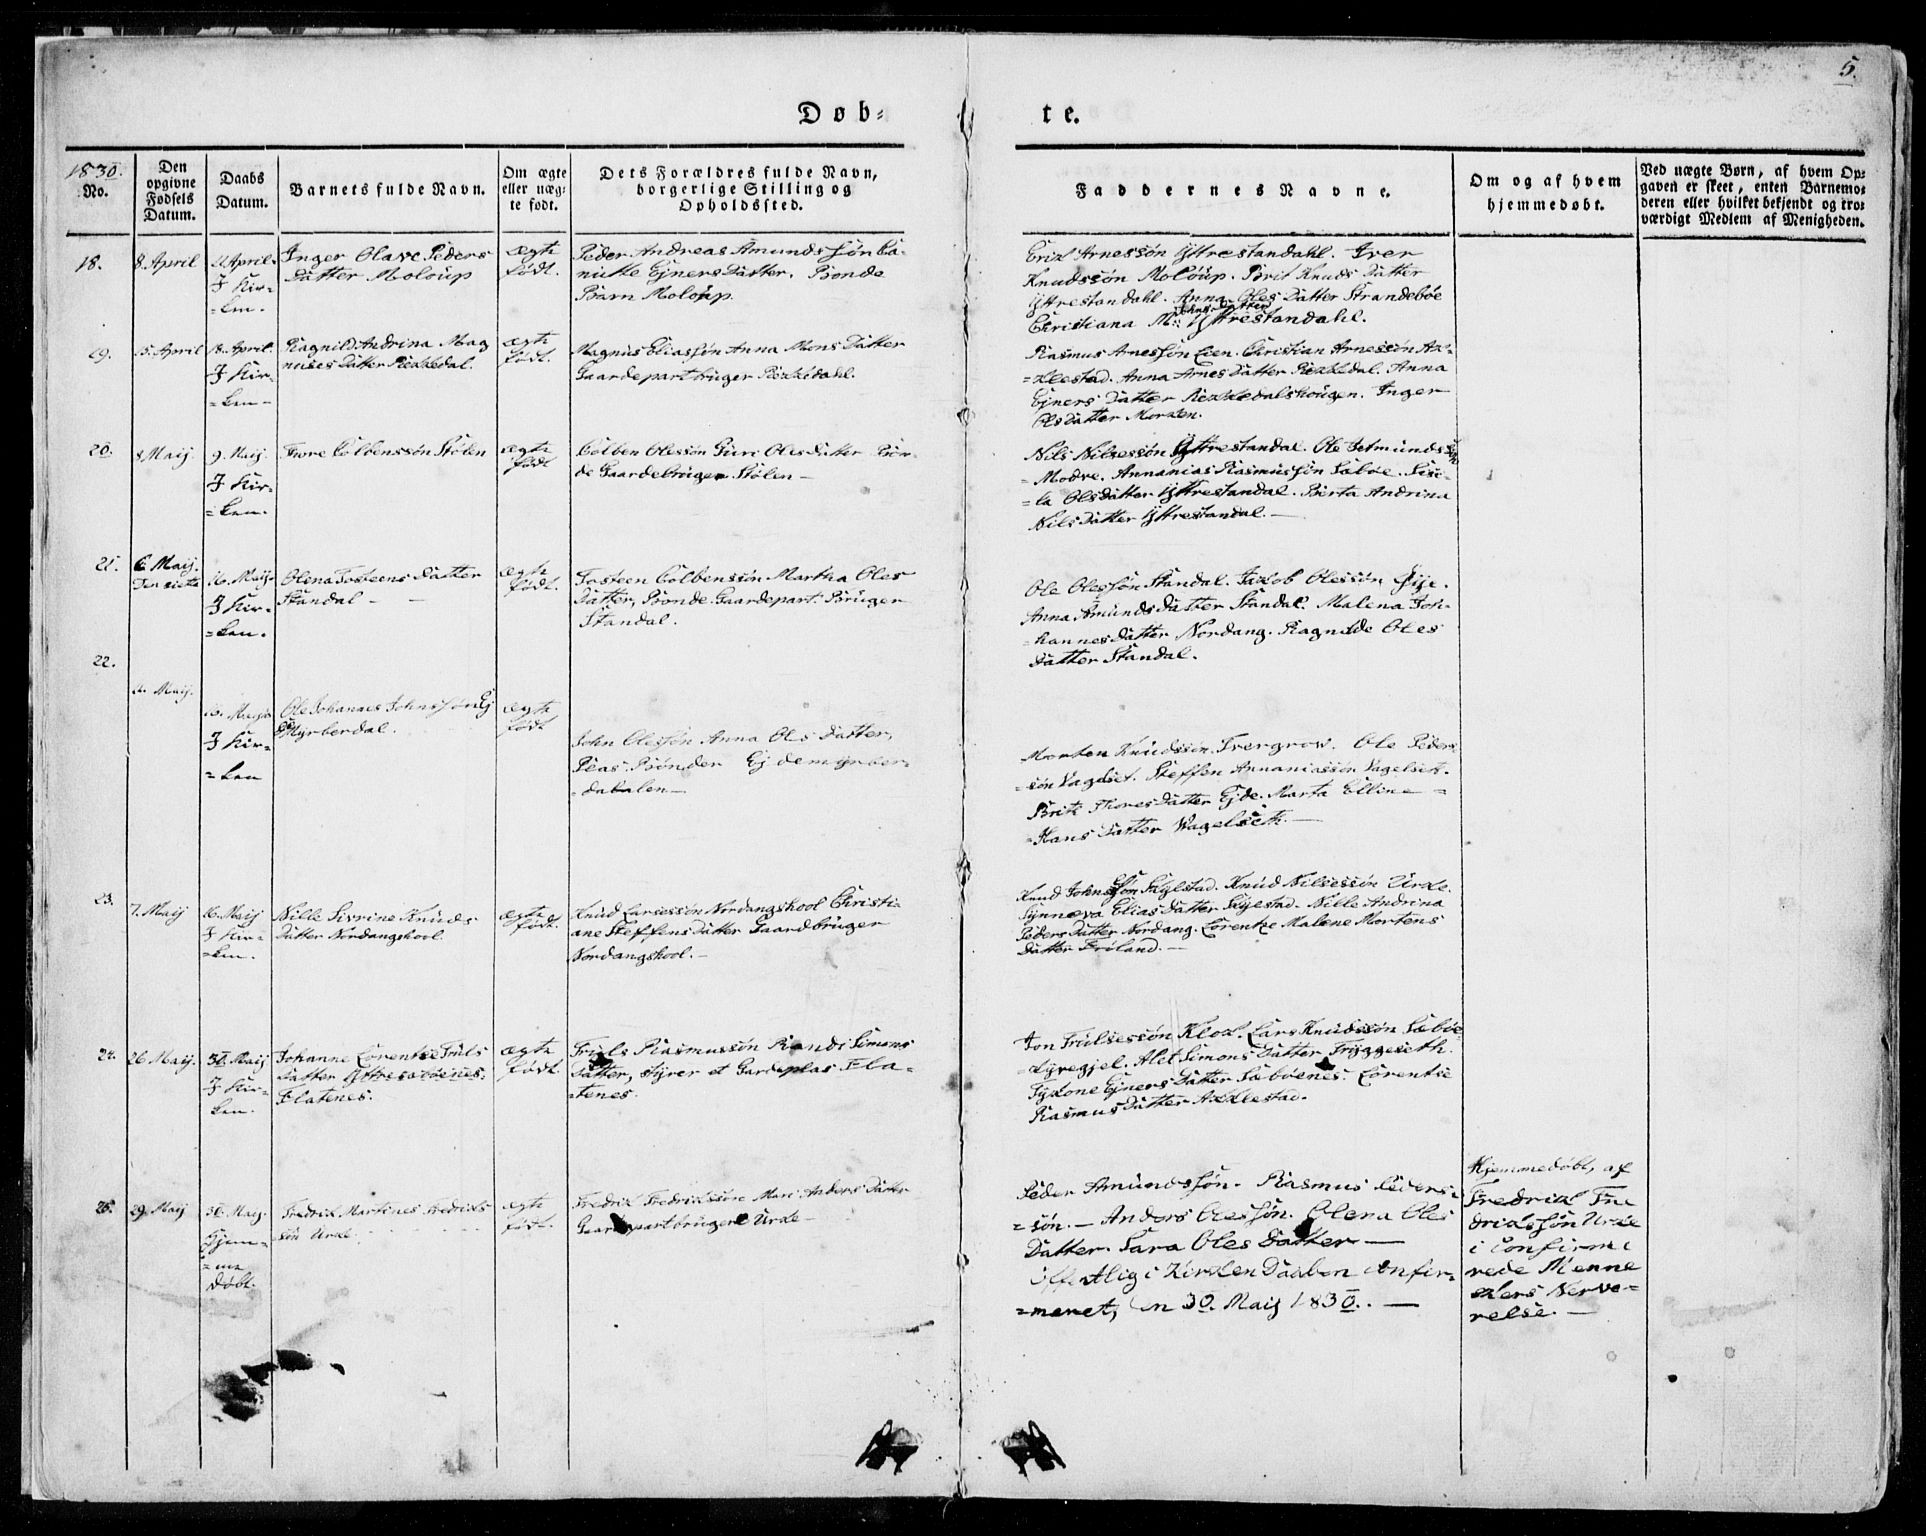 5.
Døb-
te.
1830.
No.
Den
opgivne
Fødsels
Datum.
Daabs
Datum.
Barnets fulde Navn.
Om ægte
eller uæg-
te født.
Dets Forældres fulde Navn,
borgerlige Stilling og
Opholdssted.
Faddernes Navne.
Om og af hvem
hjemmedøbt.
Ved uægte Børn, af hvem Op-
gaven er skeet, enten Barnemo-
deren eller hvilket bekjendt og tro-
værdigt Medlem af Menigheden.
18.
8 April
April.
I Kir-
=ken.
Inger Olave Peders
Datter Moloup
ægte
født.
Peder Andreas Amundssøn
Ejners Datter. Bonde
Barn Moloup.
Erik Arnessøn Yttrestandahl. Iver
Knudssøn Moloup. Brit Knuds Datter
Yttrestandahl. Anna Oles Datter Strandebøe
Johns Datter
Christiana M: Yttrestandahl.
19.
15. April
18. April.
I Kir-
=ken-
Ragnild Andrina Mag
nuses Datter Rekkedal.
ægte
født.
Magnus Eliassøn Anna Mons Datter
Gaardepartbruger Rekkedahl.
Rasmus Arnessøn Eien. Christian Arnessøn Ak-
=klestad. Anna Arnes Datter Rekkedal. Anna
Ejners Datter Rekkedalshougen. Inger
Ols Datter Morken.
20.
8 Maij.
9. Maij.
I Kir-
=ken.
Tore Colbenssøn Stølen
ægte
født
Colben Olessøn Guri Oles Datter Bøn-
de Gaardebruger Stølen-
Nils Nilsessøn Yttrestandal. Ole Jetmunds
søn
=Modre. Annanias Rasmussøn Sæbøe. Sise-
=la Olsdatter Yttrestandal. Berta Andrina
Nils Datter Yttrestandal.-
21.
6 Maij.
Den siette
16. Maij.
I Kir-
=ken.
Olena Tosteens Datter
Standal -
ægte
født.
Tosteen Colbenssøn Martha Oles
Datter, Bonde. Gaardepart. Bruger
Standal.
Ole Olessøn Standal. Jakob Olessøn
Anna Amunds Datter Standal. Malena Joh-
=hannes Datter Nordang. Ragnilde Oles
Datter Standal.
22.
Maij.
16. Maij.
I Kir-
=ken
Ole Johannes Johnssøn Ej
de Myrberdal.
ægte
født
John Olessøn Anna Ols Datter,
Bønder Ejdemyrber-
=dalen-
Morten Knudssøn. Tvergrow. Ole Peders
=søn Vagset. Steffen Annaniassøn Vagelset.
Brite Thores Datter Ejde. Marta Elline =
=Hans Datter Vagelseth.-
23.
7. Maij
16. Maij
I Kir-
=ken.
Nille Sivrine Knuds
Datter Nordangskool.
ægte
født.
Knud Larsessøn Nordangskool Christi-
ane Steffens Datter Gaardbruger
Nordangskool.-
Knud Johnssøn Skylstad. Knud Nilsessøn Urke.
Synneva Elias Datter Skyestad. Nille Andrina
Peders Datter Nordang. Lorentze Malene Mortens
Datter Friland.-
24.
26 Maij.
30. Maij
I Kir-
ken.
Johanne Lorentse Truls
Datter Yttresæbøenes.
Flatenes.
ægte
født.
Truls Rasmussøn Randi Simons
Datter, styrer et Gardeplas Fla-
=tenes.
Jon Trulsessøn Klok. Lars Knudssøn Sæbøe
=Lyregjel. Alet Simons Datter Tryggeseth.
Ejners Datter Sæbøenes. Lorentse
Rasmus Datter Akklestad.
25.
29. Maij
30. Maij.
Hjem-
=me
døbt.
Fredrik Martines Fredriks
søn Urke.
ægte
født.
Fredrik Fredrikssøn Mari Anders Datter
Gaardepartbruger Urke-
Peder Amundssøn. Rasmus Peders-
=søn.- Anders Olessøn. Olena Oles
Datter. Sara Oles Datter-
Offentlig i Kirken Daaben confir-
=meret, den 30. Maij 1830.-
Hjemmedøbt, af
Fredrik Fre
drikssøn Urke
i confirme
rede Menne
skers Nerve-
relse.-